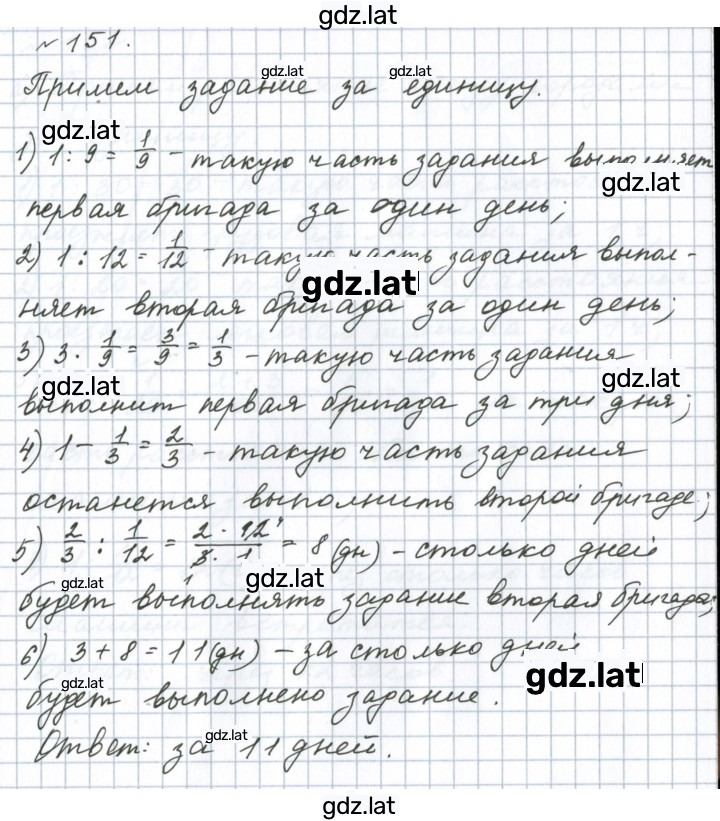 gdz.lat
№ 151.
gdz.lat gdz.lat
Примем задание за единицу.
gdz.lat
1) 1 : 9 = 1/9 - такую часть задания выполняет
gdz.lat
первая бригада за один день;
2) 1 : 12 = 1/12 - такую часть задания выпол-
gdz.lat
няет вторая бригада за один день;
3) 3 · 1/9 = 3/9 = 1/3 - такую часть задания
gdz.lat gdz.lat
выполнит первая бригада за три дня;
4) 1 - 1/3 = 2/3 - такую часть задания
останется выполнить второй бригаде;
5) 2/3 : 1/12 = 2 · 12/3 · 1 = 8 (дн) - столько дней
gdz.lat gdz.lat
будет выполнять задание вторая бригада;
6) 3 + 8 = 11 (дн) - за столько дней
gdz.lat gdz.lat
будет выполнено задание.
gdz.lat
Ответ: за 11 дней.
gdz.lat